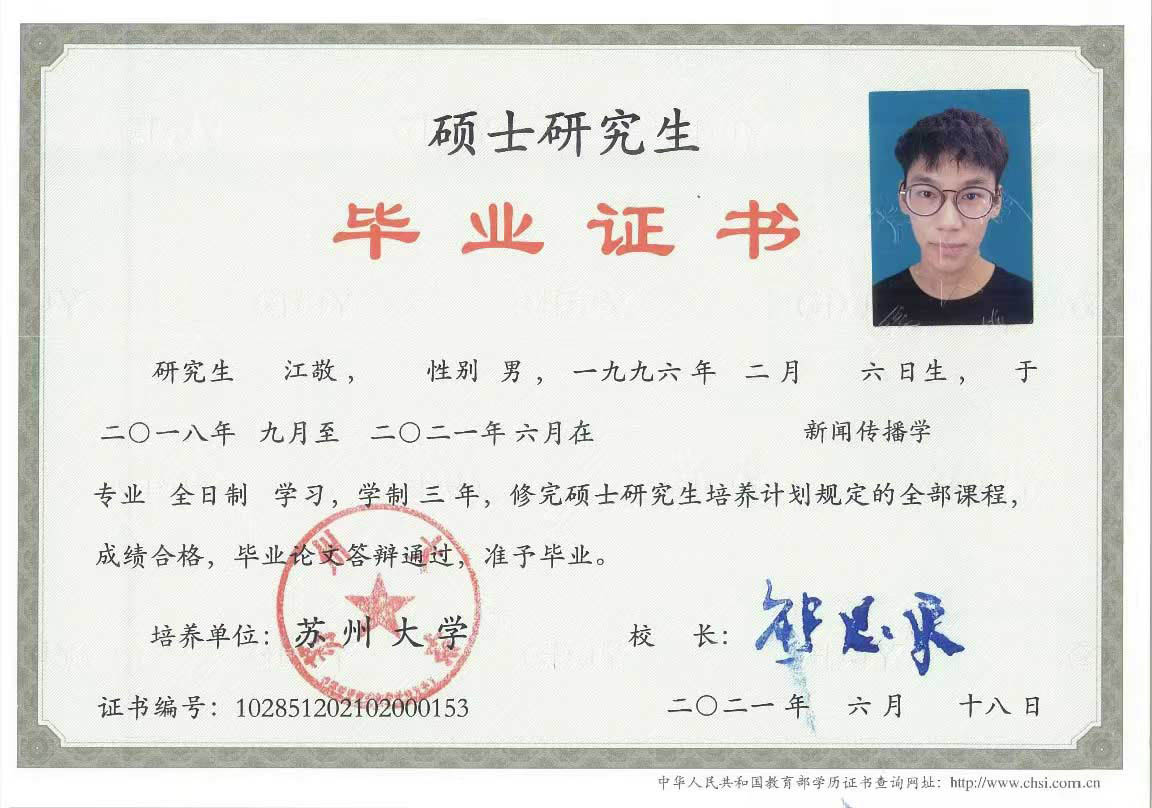 硕士研究生
毕业证书
研究生 江敬， 性别 男， 一九九六年 二月 六日生， 于
二〇一八年 九月至 二〇二一年六月在 新闻传播学
专业 全日制 学习，学制 三 年，修完硕士研究生培养计划规定的全部课程，
成绩合格，毕业论文答辩通过，准予毕业。
培养单位：苏州大学 校 长：
证书编号：102851202102000153 二〇二一年 六月 十八日
中华人民共和国教育部学历证书查询网址：http://www.chsi.com.cn